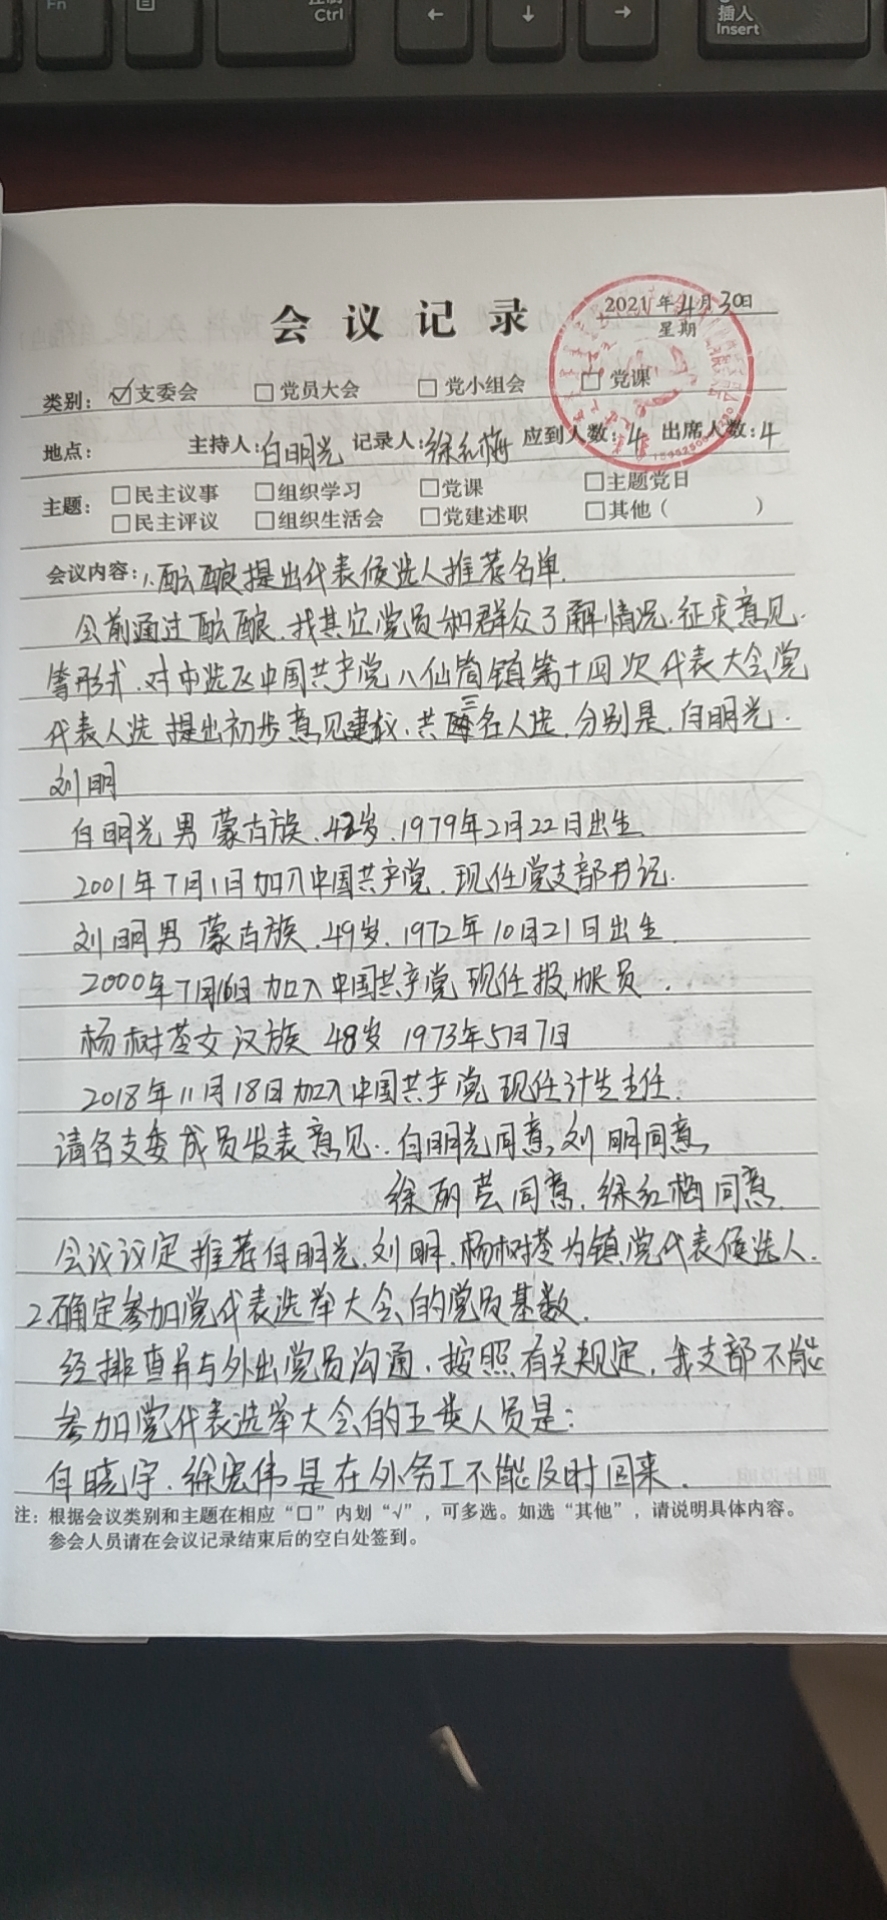 Fn
Ctrl
←
↓
→
插人
Insert
会 议 记 录
2021年4月30日
星期
类别：☑支委会 □党员大会 □党小组会 □党课
地点： 主持人：白明光 记录人：徐红梅 应到人数：4 出席人数：4
主题：□民主议事 □组织学习 □党课 □主题党日
□民主评议 □组织生活会 □党建述职 □其他（ ）
会议内容：1.酝酿提出代表候选人推荐名单.
会前通过酝酿、找其它党员和群众了解情况、征求意见.
等形式、对市选区中国共产党八仙筒镇第十四次代表大会党
代表人选 提出初步意见建议、共三名人选、分别是、白明光.
刘明
白明光 男 蒙古族、42岁、1979年2月22日出生
2001年7月1日加入中国共产党、现任党支部书记.
刘明 男 蒙古族、49岁、1972年10月21日出生.
2000年7月16日加入中国共产党 现任报账员.
杨树苓 女 汉族 48岁 1973年5月7日
2018年11月18日加入中国共产党 现任计生主任.
请各支委成员发表意见：白明光同意、刘明同意、
徐丽芸同意、徐红梅同意.
会议议定推荐白明光、刘明、杨树苓为镇党代表候选人.
2.确定参加党代表选举大会的党员基数.
经排查并与外出党员沟通、按照有关规定、我支部不能
参加党代表选举大会的五类人员是：
白晓宇、徐宏伟是在外务工不能及时回来.
注：根据会议类别和主题在相应“□”内划“√”，可多选。如选“其他”，请说明具体内容。
参会人员请在会议记录结束后的空白处签到。